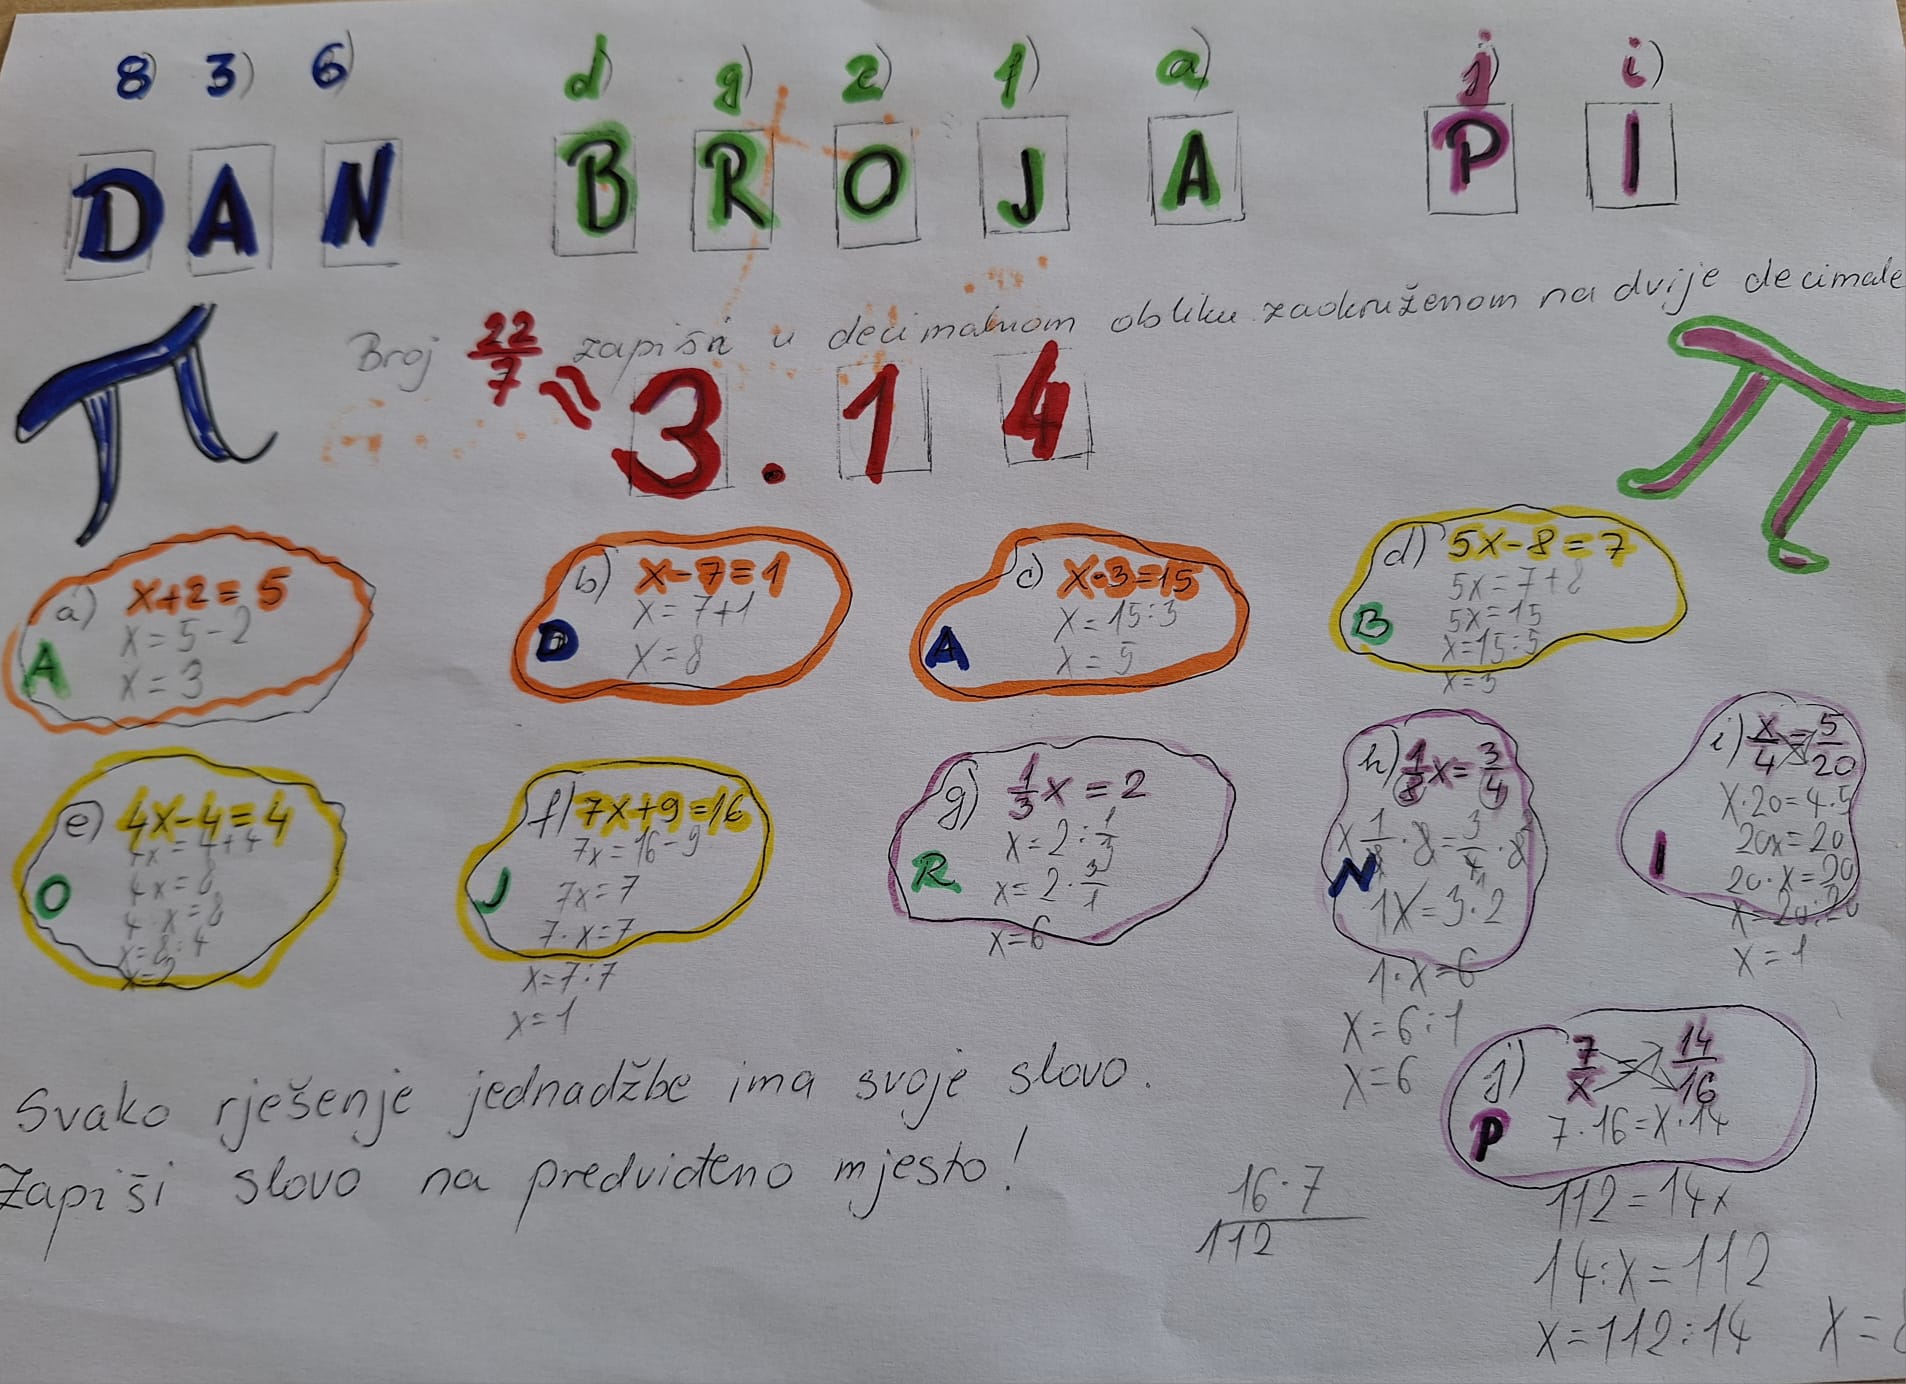 8) 3) 6) d) g) e) f) a) j) i)
D A N B R O J A P I
Broj 22/7 zapiši u decimalnom obliku zaokruženom na dvije decimale
≈ 3.14
a) x+2=5
x=5-2
x=3
A
b) x-7=1
x=7+1
x=8
D
c) x·3=15
x=15:3
x=5
A
d) 5x-8=7
5x=7+8
5x=15
x=15:5
x=3
B
e) 4x-4=4
4x=4+4
4x=8
4·x=8
x=8:4
x=2
O
f) 7x+9=16
7x=16-9
7x=7
7·x=7
x=7:7
x=1
J
g) 1/3x=2
x=2:1/3
x=2·3/1
x=6
R
h) 1/8x=3/4
x 1/8·8=3/4·8
1x=3·2
1·x=6
x=6:1
x=6
N
i) x/4=5/20
x·20=4·5
20x=20
20·x=20
x=20:20
x=1
I
j) 7/x=14/16
7·16=x·14
112=14x
14:x=112
x=112:14 x=8
P
Svako rješenje jednadžbe ima svoje slovo.
Zapiši slovo na predviđeno mjesto!
16·7
112